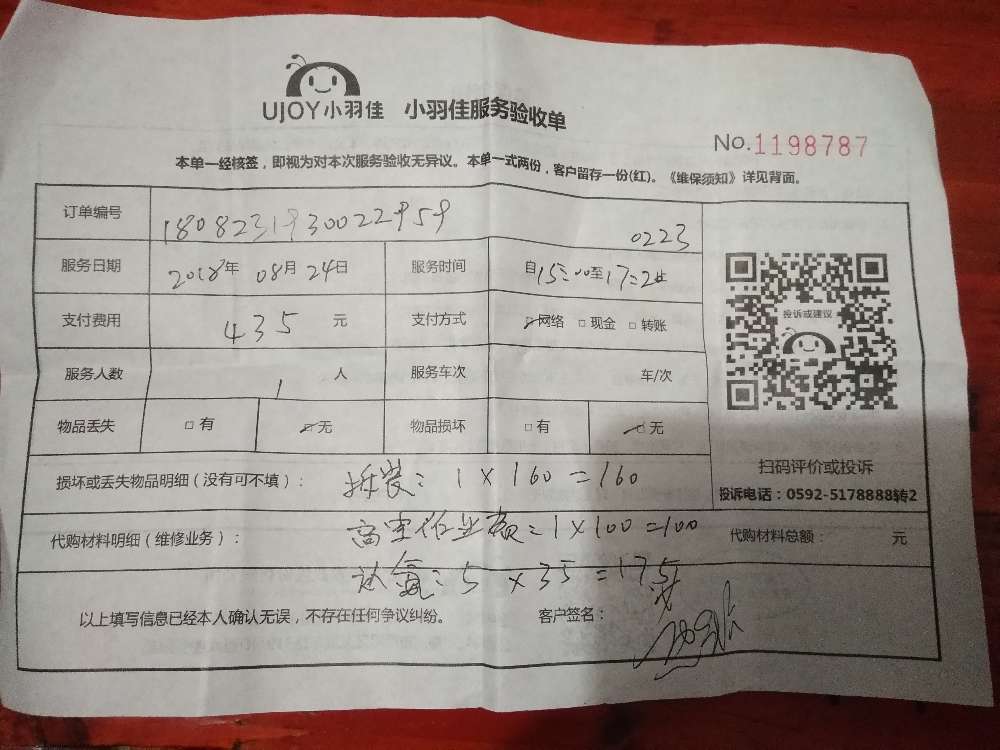 UJOY小羽佳 小羽佳服务验收单
No.1198787
本单一经核签，即视为对本次服务验收无异议。本单一式两份，客户留存一份(红)。《维保须知》详见背面。
订单编号 1808231930022959 0223
服务日期 2018年 08月 24日 服务时间 自15:00至17:20
支付费用 435 元 支付方式 网络 □ 现金 □ 转账
服务人数 1 人 服务车次 车/次
物品丢失 □ 有 无 物品损坏 □ 有 无
投诉或建议
扫码评价或投诉
投诉电话：0592-5178888转2
损坏或丢失物品明细（没有可不填）： 拆装：1×160=160
代购材料明细（维修业务）： 高空作业费：1×100=100 代购材料总额： 元
氟：5×35=175
以上填写信息已经本人确认无误，不存在任何争议纠纷。 客户签名：